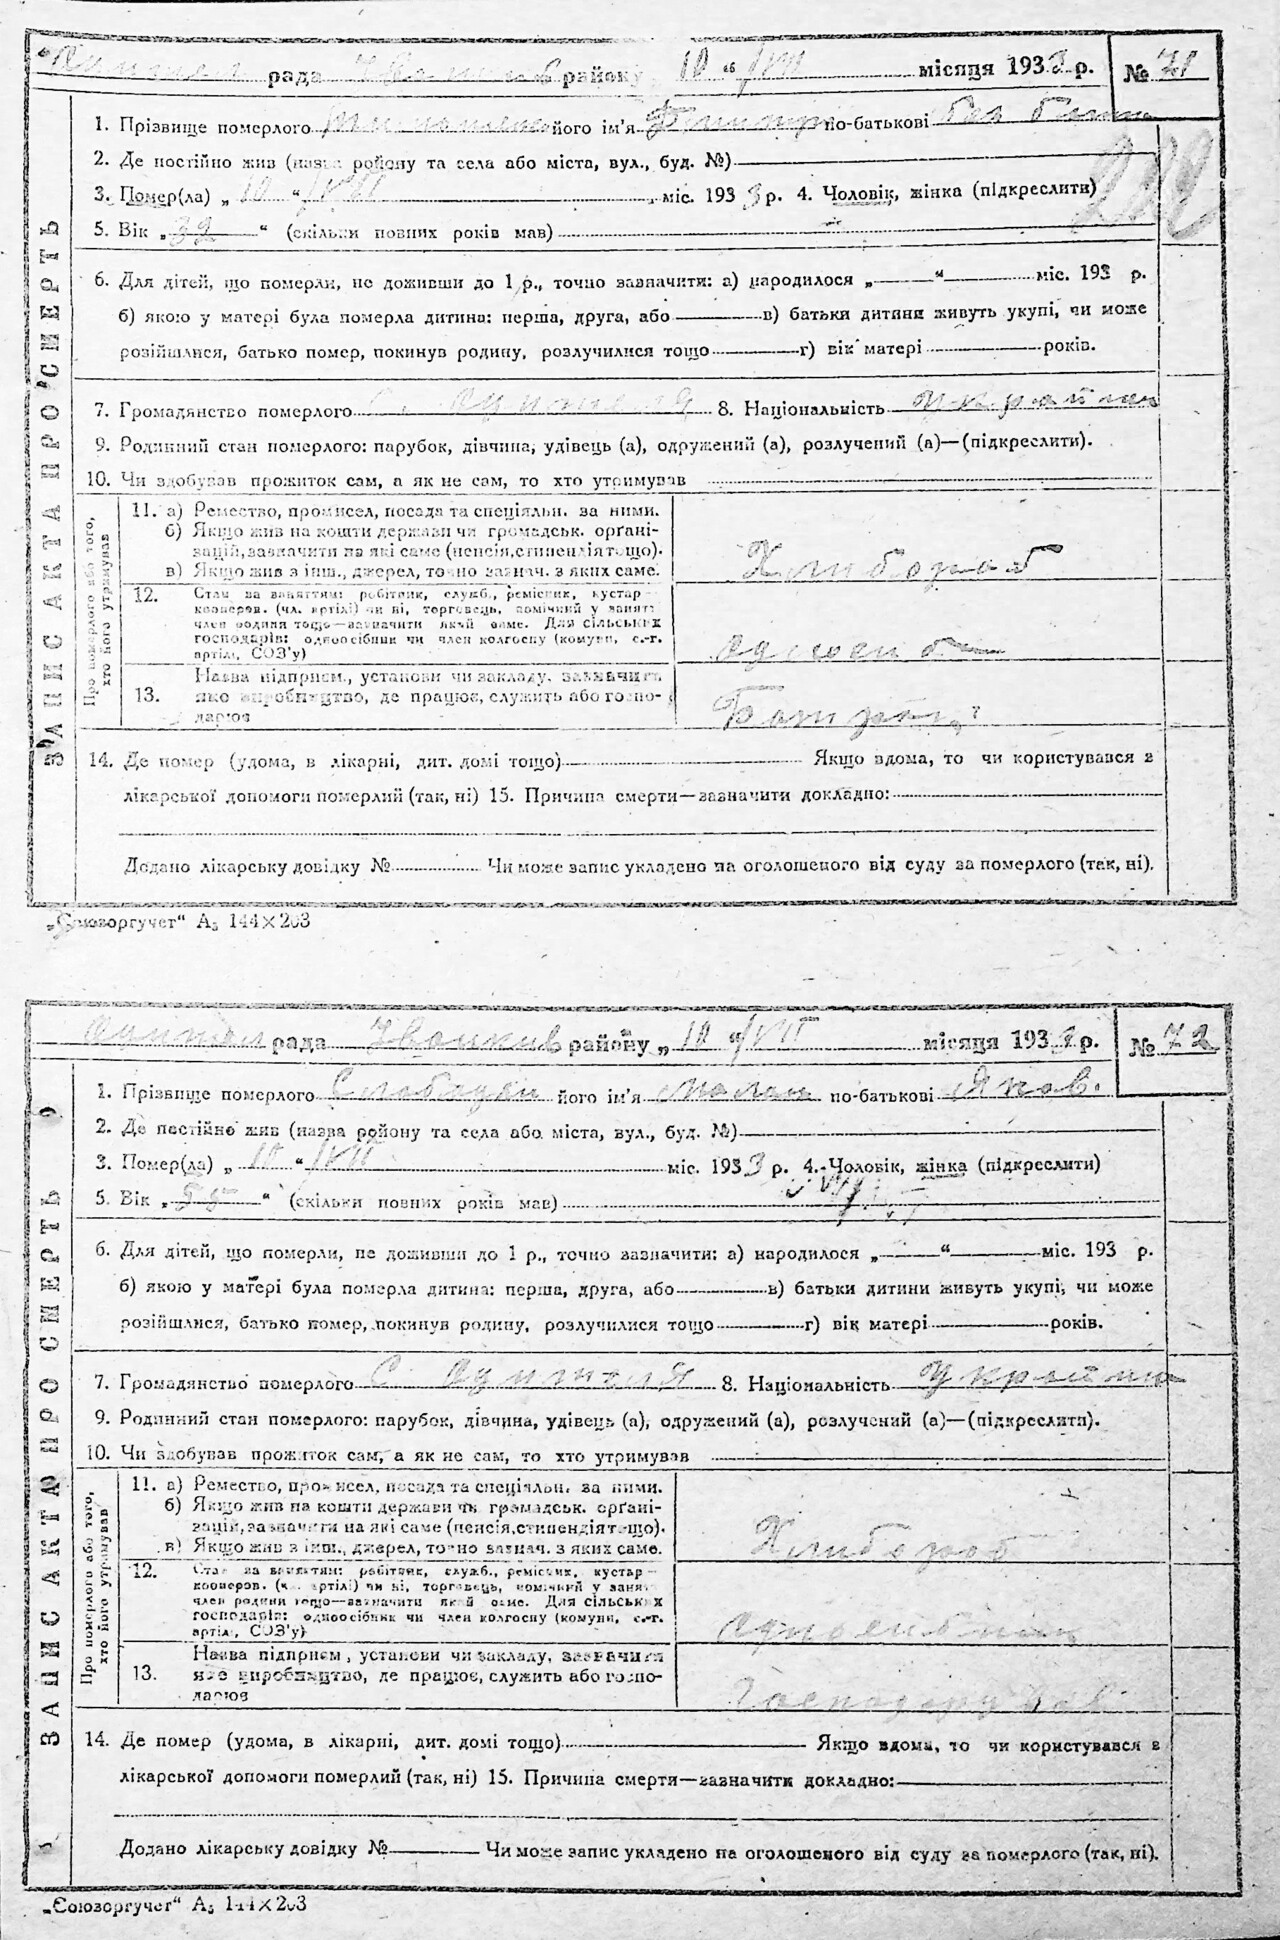 рада районy 10 “/VII місяця 1933 р. № 71
1. Прізвище померлого його ім'я Дмитр по-батькові без батьк
2. Де постійно жив (назва району та села або міста, вул., буд. №)
3. Помер(ла) „ 10 “/VII міс. 1933 р. 4. Чоловік, жінка (підкреслити)
5. Вік „ 32 “ (скільки повних років мав)
6. Для дітей, що померли, не доживши до 1 р., точно зазначити: а) народилося „ “ міс. 193 р.
б) якою у матері була померла дитина: перша, друга, або в) батьки дитини живуть укупі, чи може
розійшлися, батько помер, покинув родину, розлучилися тощо г) вік матері років.
7. Громадянство померлого 8. Національність україн
9. Родинний стан померлого: парубок, дівчина, удівець (а), одружений (а), розлучений (а)—(підкреслити).
10. Чи здобував прожиток сам, а як не сам, то хто утримував
ЗАПИС АКТА ПРО СМЕРТЬ
Про померлого або того,
хто його утримував
11. а) Ремество, промисел, посада та спеціяльн. за ними.
б) Якщо жив на кошти держави чи громадськ. орґані-
зацій, зазначити на які саме (пенсія, стипендія тощо).
в) Якщо жив з інш., джерел, точно зазнач. з яких саме.
Хлибороб
12. Стан за заняттям: робітник, служб., ремісник, кустар—
кооперов. (чл. артілі) чи ні, торговець, помічний у занятт
член родини тощо—зазначити який саме. Для сільських
господарів: одноосібник чи член колгоспу (комуни, с.-г.
артілі, СОЗ'у)
13. Назва підприєм., установи чи закладу, зазначити
яке виробництво, де працює, служить або госпо-
дарює
14. Де помер (удома, в лікарні, дит. домі тощо) Якщо вдома, то чи користувався з
лікарської допомоги померлий (так, ні) 15. Причина смерти—зазначити докладно:
Додано лікарську довідку № Чи може запис укладено на оголошеного від суду за померлого (так, ні).
„Союзоргучет“ А₅ 144×203
рада районy „ 10 “/VII місяця 1933 р. № 72
1. Прізвище померлого його ім'я по-батькові Яков.
2. Де постійно жив (назва району та села або міста, вул., буд. №)
3. Помер(ла) „ 10 “/VII міс. 1933 р. 4. Чоловік, жінка (підкреслити)
5. Вік „ “ (скільки повних років мав)
6. Для дітей, що померли, не доживши до 1 р., точно зазначити: а) народилося „ “ міс. 193 р.
б) якою у матері була померла дитина: перша, друга, або в) батьки дитини живуть укупі, чи може
розійшлися, батько помер, покинув родину, розлучилися тощо г) вік матері років.
7. Громадянство померлого С. 8. Національність Україн
9. Родинний стан померлого: парубок, дівчина, удівець (а), одружений (а), розлучений (а)—(підкреслити).
10. Чи здобував прожиток сам, а як не сам, то хто утримував
ЗАПИС АКТА ПРО СМЕРТЬ
Про померлого або того,
хто його утримував
11. а) Ремество, промисел, посада та спеціяльн. за ними.
б) Якщо жив на кошти держави чи громадськ. орґані-
зацій, зазначити на які саме (пенсія, стипендія тощо).
в) Якщо жив з інш., джерел, точно зазнач. з яких саме.
Хлибороб
12. Стан за заняттям: робітник, служб., ремісник, кустар—
кооперов. (чл. артілі) чи ні, торговець, помічний у занятт
член родини тощо—зазначити який саме. Для сільських
господарів: одноосібник чи член колгоспу (комуни, с.-г.
артілі, СОЗ'у)
13. Назва підприєм., установи чи закладу, зазначити
яке виробництво, де працює, служить або госпо-
дарює
14. Де помер (удома, в лікарні, дит. домі тощо) Якщо вдома, то чи користувався з
лікарської допомоги померлий (так, ні) 15. Причина смерти—зазначити докладно:
Додано лікарську довідку № Чи може запис укладено на оголошеного від суду за померлого (так, ні).
„Союзоргучет“ А₅ 144×203